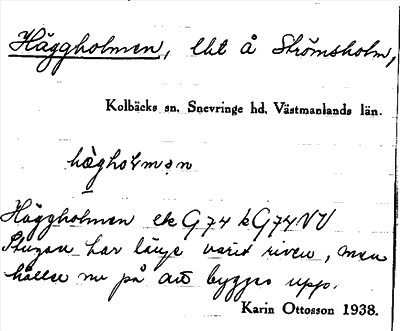 Häggholmen, lht å Strömsholm,
Kolbäcks sn. Snevringe hd. Västmanlands län.
hæ̀gholman
Häggholmen ek G74 kG74VV
Stugan har länge varit riven, men
håller nu på att byggas upp.
Karin Ottosson 1938.